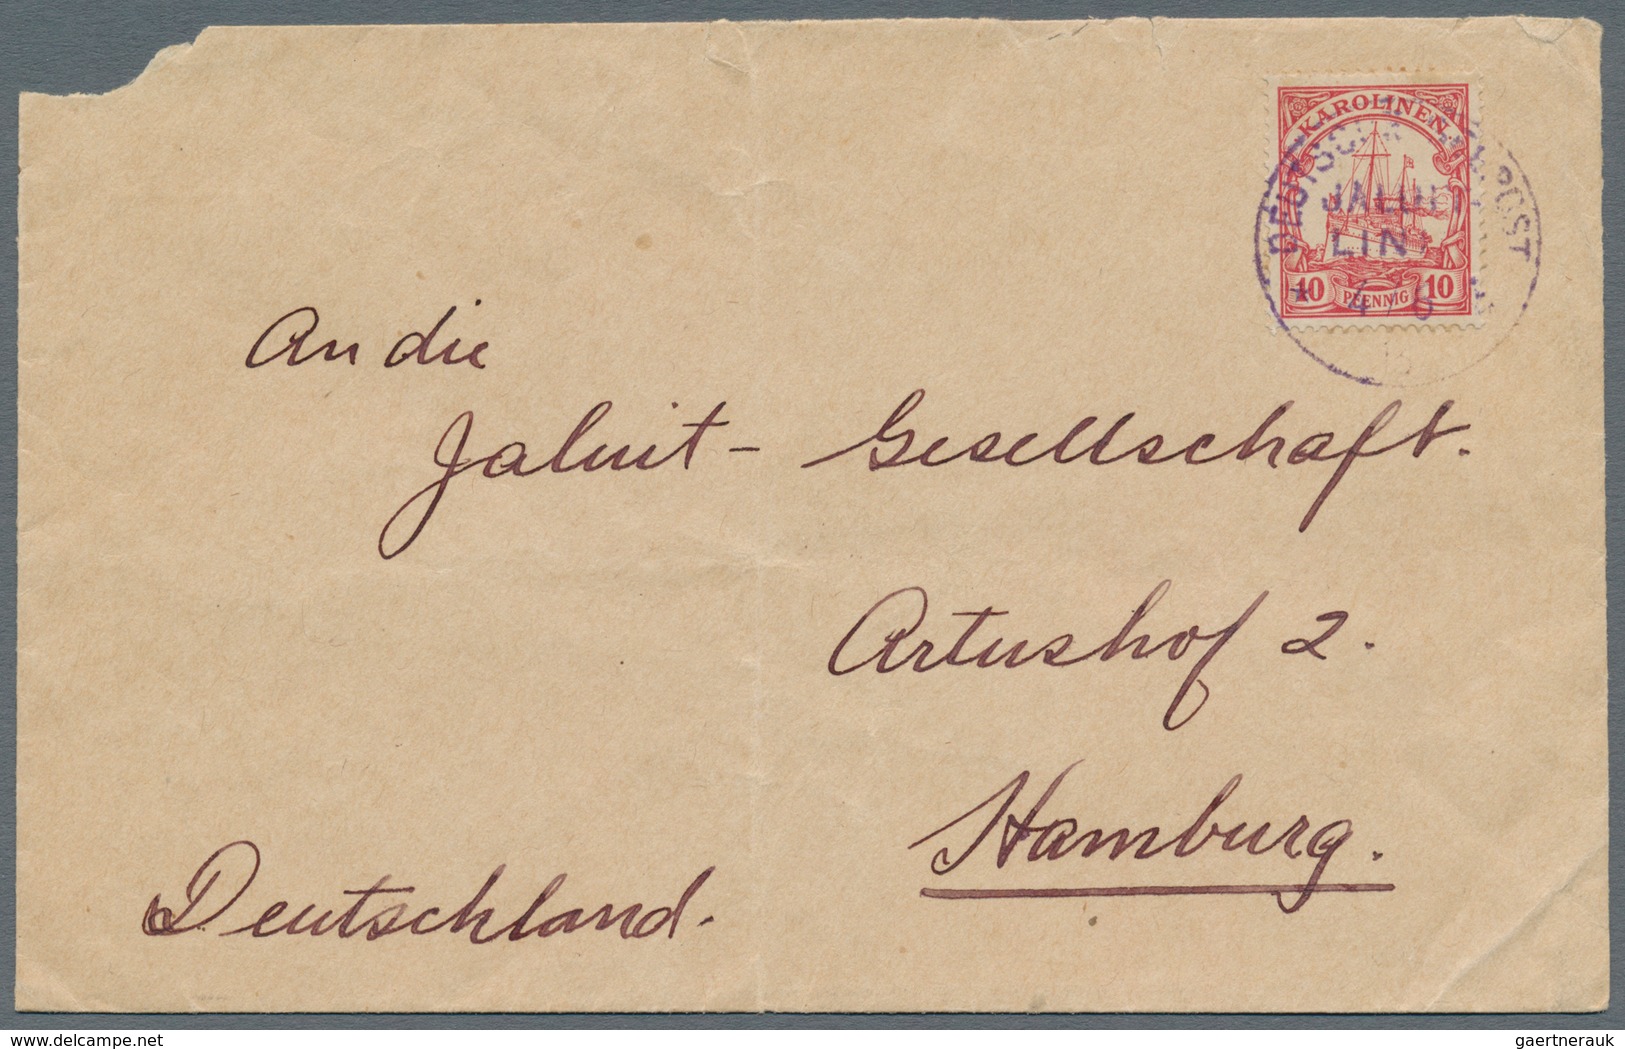 KAROLINEN
DEUTSCHE SEEPOST
JALUIT
LIN
10 PFENNIG 10
An die
Jaluit - Gesellschaft.
Artushof 2.
Hamburg.
Deutschland.
delcampe.net
gaertnerauk